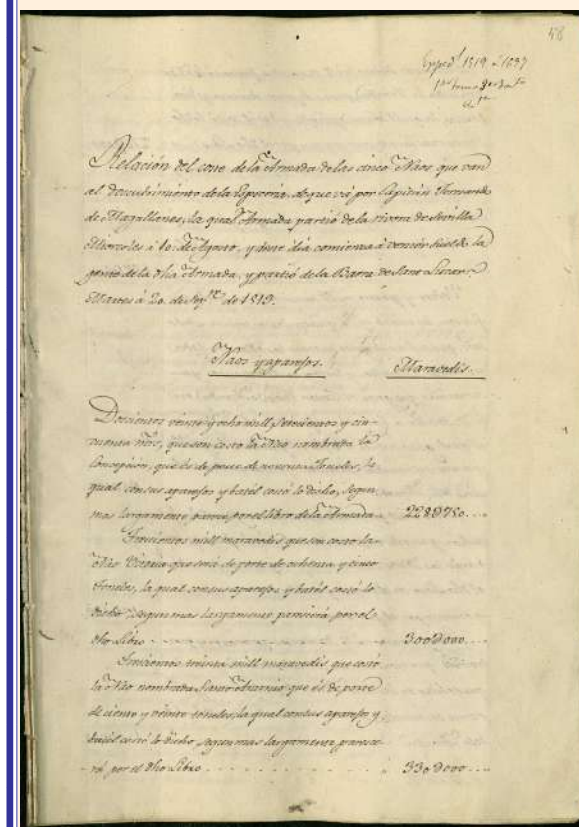 58
Exped.te 1519 á 1697
Relación del coste de la Armada de las cinco Naos que van
al descubrimiento de la Especeria, de que vá por Capitan Fernando
de Magallanes, la qual Armada partió de la rivera de Sevilla
Miercoles á 10. de Agosto, y este dia comienza á vencer sueldo la
gente de la dha Armada, y partió de la Barra de Sant Lucar
Martes á 20. de Sep.re de 1519.
Naos y aparejos.
Maravedis.
Doscientos veinte y ocho mill setecientos y cin-
cuenta mrs, que son costo la Nao nombrada la
Concepcion, que és de porte de noventa Toneles, la
qual con sus aparejos y batél costó lo dicho, segun
mas largamente parece por el libro de la Armada
228⊘750...
Trescientos mill maravedis que son costo la
Nao Vitoria que será de porte de ochenta y cinco
toneles, la qual con sus aparejos y batél costó lo
dicho, segun mas largamente parecerá por el
dho Libro
300⊘000...
Trescientos treinta mill maravedis que costó
la Nao nombrada Santo Antonio que és de porte
de ciento y veinte toneles, la qual con sus aparejos y
batél costó lo dicho segun mas largamente parece-
rá por el dho Libro
330⊘000...